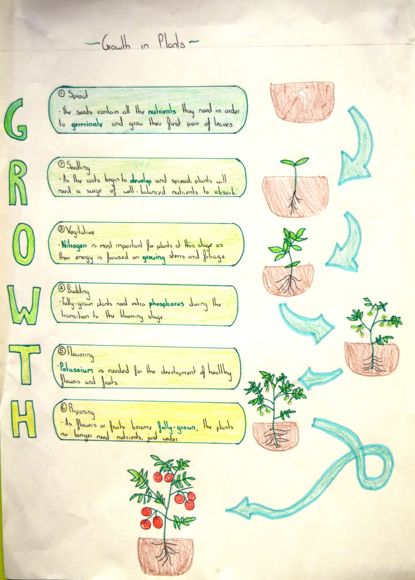 ~Growth in Plants~
GROWTH
① Sprout
- The seeds contain all the nutrients they need in order
to germinate and grow their first pair of leaves.
② Seedling
- As the roots begin to develop and spread, plants will
need a surge of well-balanced nutrients to absorb.
③ Vegetative
- Nitrogen is most important for plants at this stage as
their energy is focused on growing stems and foliage.
④ Budding
- Fully-grown plants need extra phosphorus during the
transition to the blooming stage.
⑤ Flowering
- Potassium is needed for the development of healthy
flowers and fruits.
⑥ Ripening
- As flowers or fruits become fully-grown, the plants
no longer need nutrients, just water.